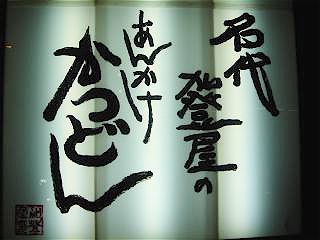 名代
加登屋の
あんかけ
かつどん